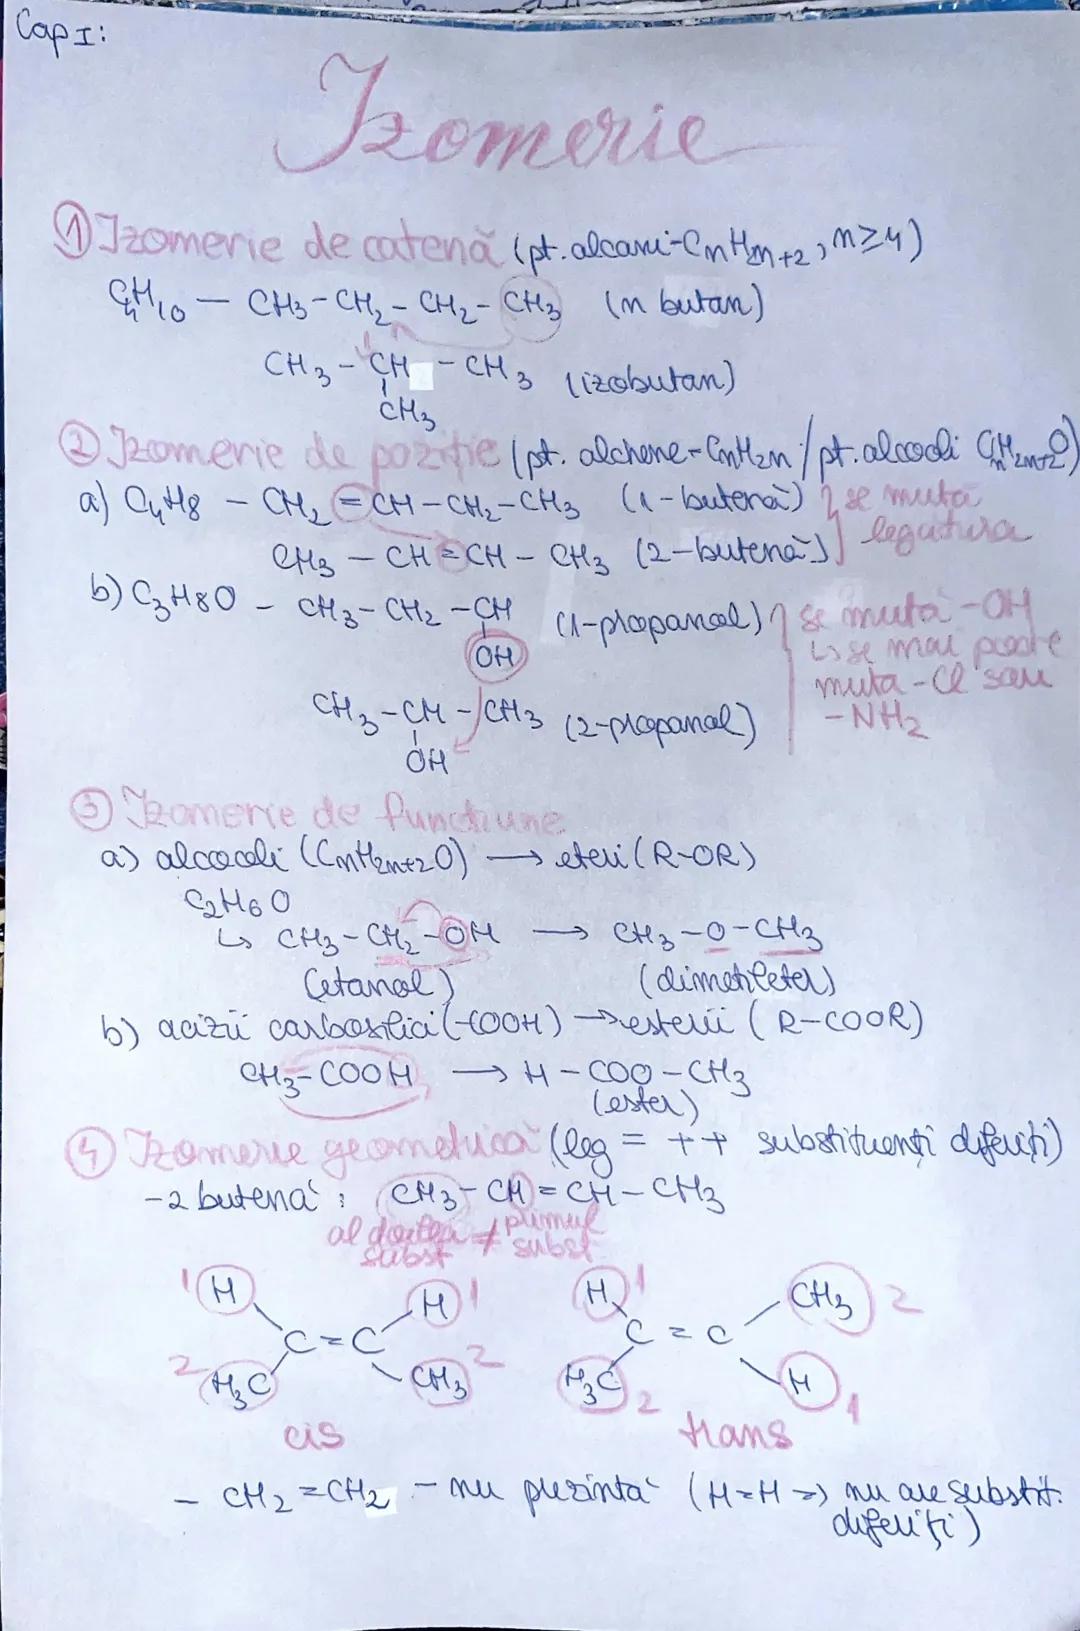 Cap I:
Izomerie
① Izomerie de catenă (pt. alcani - CnH2n+2, n≥4)
C4H10 — CH3-CH2-CH2-CH3 (n butan)
CH3-CH-CH3 (izobutan)
CH3
② Izomerie de poziție (pt. alchene - CnH2n / pt. alcooli CnH2n+2O)
a) C4H8 - CH2=CH-CH2-CH3 (1-butenă) } se mută
CH3-CH=CH-CH3 (2-butenă) legătura
b) C3H8O - CH3-CH2-CH (1-propanol) } se mută -OH
OH ↳ se mai poate
muta -Cl sau
CH3-CH-CH3 (2-propanol) -NH2
OH
③ Izomerie de funcțiune
a) alcooli (CnH2n+2O) → eteri (R-OR)
C2H6O
↳ CH3-CH2-OH → CH3-O-CH3
(etanol) (dimetileter)
b) acizii carboxilici (-COOH) → esterii (R-COOR)
CH3-COOH → H-COO-CH3
(ester)
④ Izomerie geometrică (leg = ++ substituenți diferiți)
- 2 butenă: CH3-CH=CH-CH3
al doilea ≠ primul
subst subst
1 H H 1 H 1 CH3 2
C=C C=C
2 H3C CH3 2 H3C 2 H 1
cis trans
- CH2=CH2 - nu prezintă (H=H => nu are substit.
diferiți)